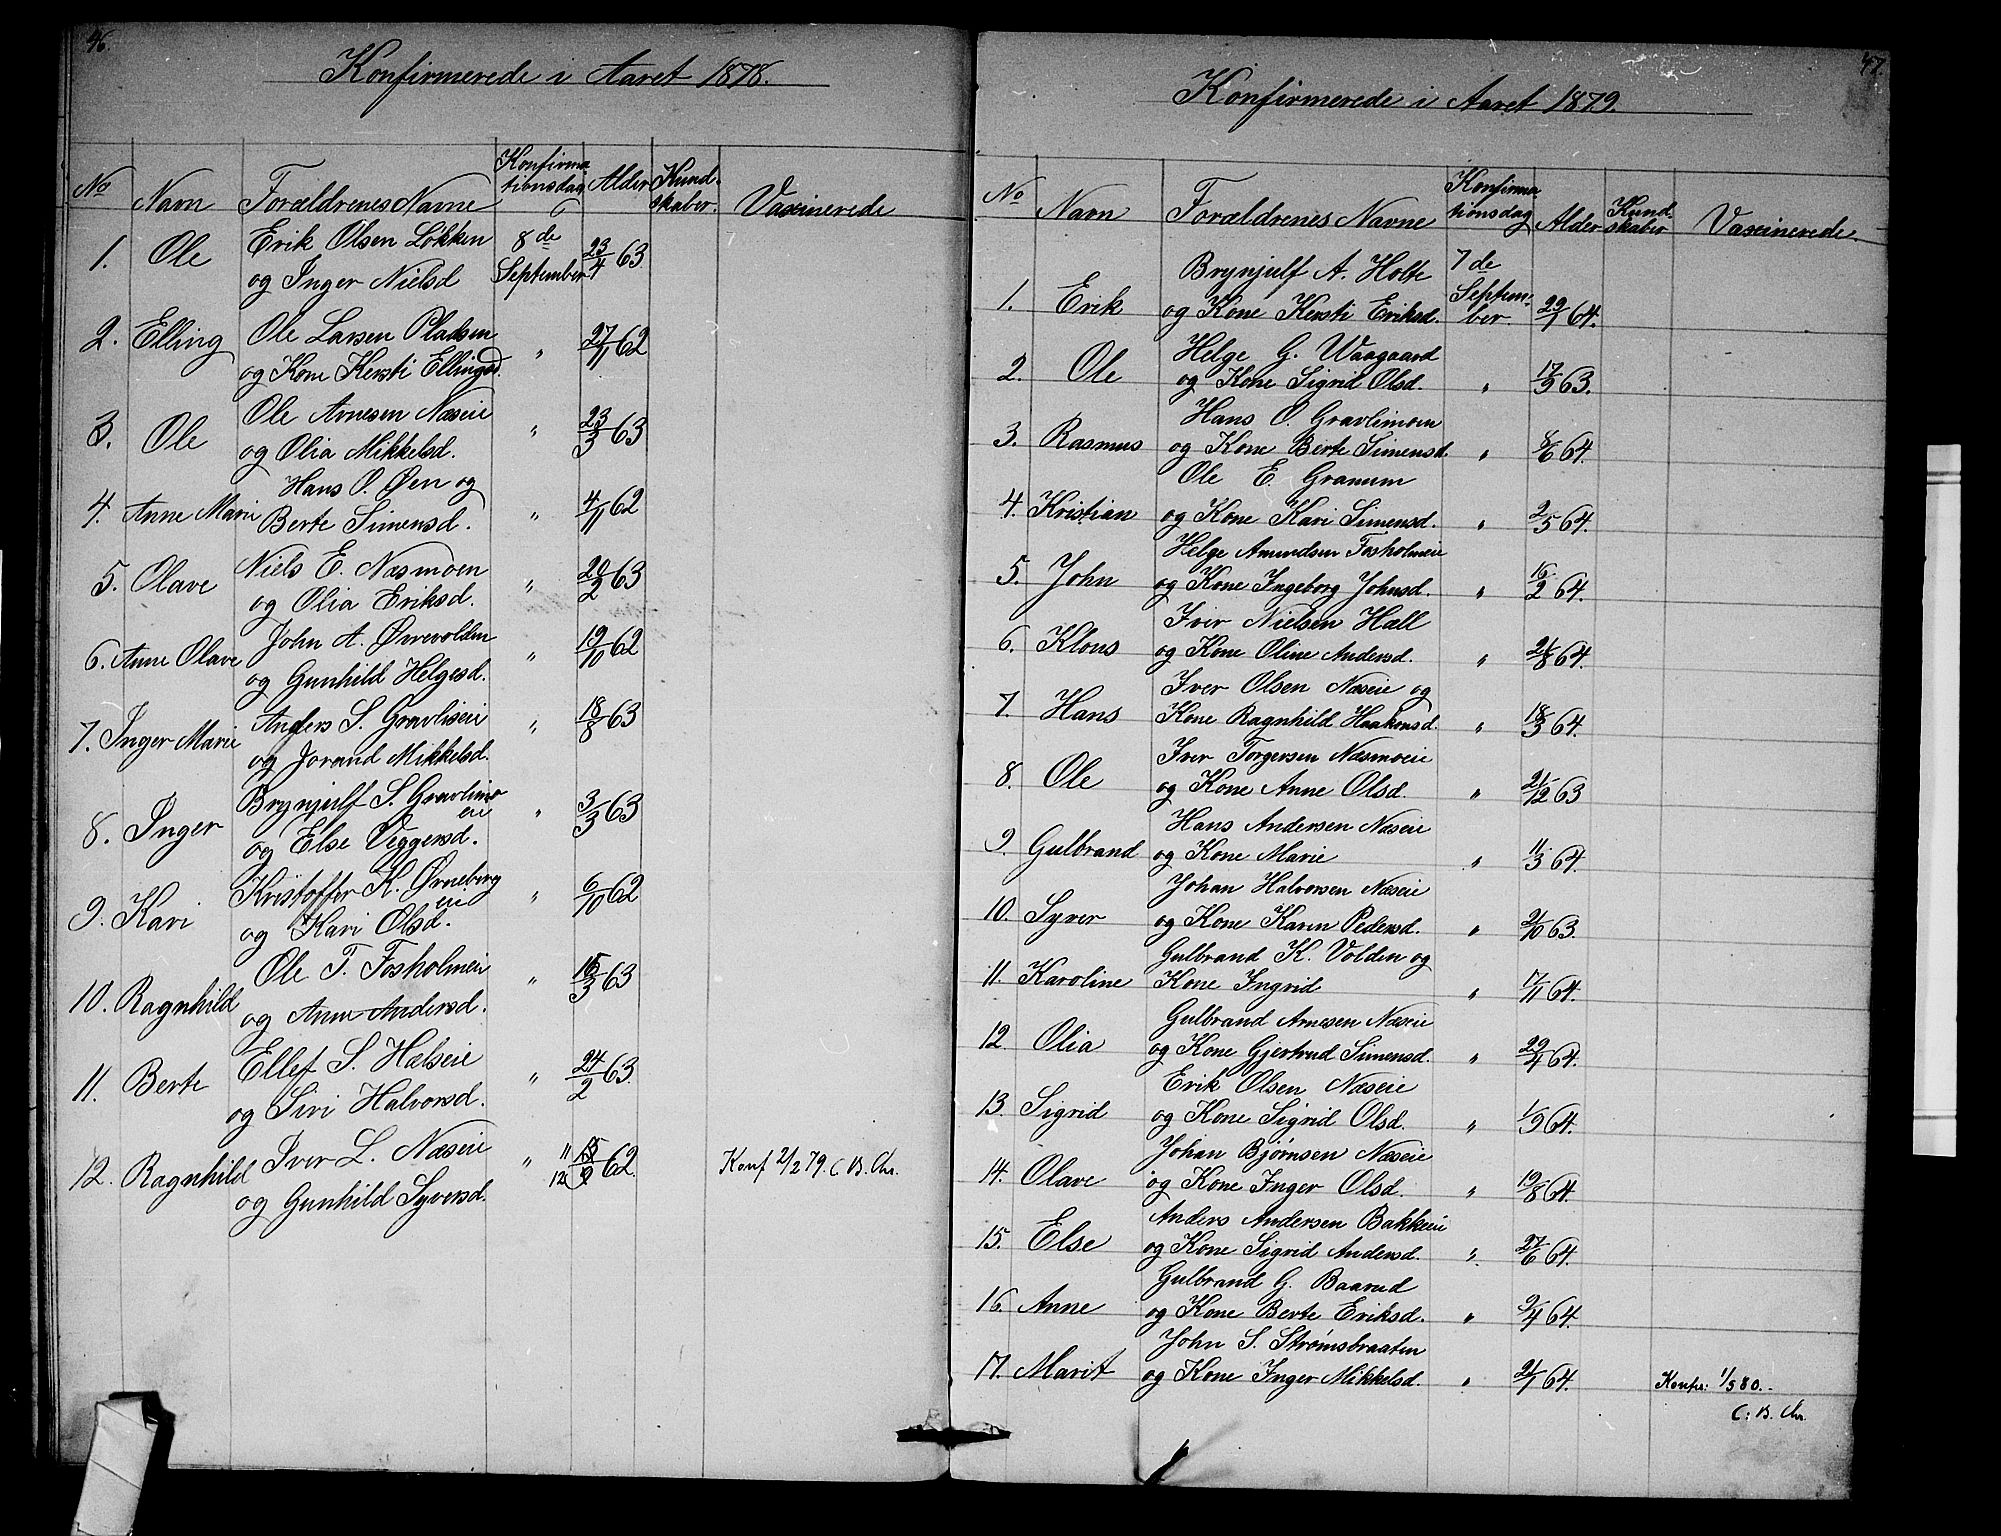 46.
Konfirmerede i Aaret 1878.
No Navn Forældrenes Navne Konfirma- tionsdag Alder Kund- skaber. Vaxinerede
1. Ole Erik Olsen Løkken 8de 23/4 63
og Inger Nielsd September
2. Elling Ole Larsen Pladsen " 27/1 62
og Kone Kersti Ellingsd.
3. Ole Ole Arnesen Næseie " 23/3 63
og Olia Mikkelsd.
4. Anne Marie Hans O. Øen og " 4/11 62
Berte Simensd.
5. Olave Niels E. Næsmoen " 63
og Olia Eriksd.
6. Anne Olave John A. Øvrevolden " 19/10 62
og Gunhild Helgesd.
7. Inger Marie Anders S. Gravlieie " 18/8 63
og Jorand Mikkelsd.
8. Inger Brynjulf S. Gravlimo " 3/3 63
eie
og Else Viggersd.
9. Kari Kristoffer K. Ørneberg " 6/10 62
eie
og Kari Olsd.
10. Ragnhild Ole T. Fosholmeie " 63
og Anne Andersd.
11. Berte Ellef S. Hælseie " 24/2 63.
og Siri Halvorsd.
12. Ragnhild Iver L. Næseie " 11/12 62. Konf 2/2 79. C. B. Chr.
og Gunhild Syversd.
47.
Konfirmerede i Aaret 1879.
No Navn Forældrenes Navne Konfirma- tionsdag Alder Kund- skaber Vaxinerede.
Brynjulf A. Holte 7de
1. Erik og Kone Kersti Eriksd. Septem- ber. 22/1 64.
Helge G. Waagaard
2. Ole og Kone Sigrid Olsd. " 17/9 63.
Hans O. Gravlimoen
3. Rasmus og Kone Berte Simensd. " 8/6 64.
Ole E. Granum
4. Kristian og Kone Kari Simensd. " 2/5 64.
Helge Amundsen Fosholmeie
5. John og Kone Ingeborg Johnsd. " 16/2 64.
Iver Nielsen Hæll
6. Klous og Kone Oline Andersd. " 64.
Iver Olsen Næseie og
7. Hans Kone Ragnhild Haakonsd. " 18/3 64.
Iver Torgersen Næsmoeie
8. Ole og Kone Anne Olsd. " 21/12 63
Hans Andersen Næseie
9. Gulbrand og Kone Marie " 11/3 64.
Johan Halvorsen Næseie
10. Syver og Kone Karen Pedersd. " 2/10 63.
Gulbrand K. Volden og
11. Karoline Kone Ingrid " 7/11 64.
Gulbrand Arnesen Næseie
12. Olia og Kone Gjertrud Simensd. " 29/4 64.
Erik Olsen Næseie
13. Sigrid og Kone Sigrid Olsd. " 1/9 64.
Johan Bjørnsen Næseie
14. Olave og Kone Inger Olsd. " 19/8 64.
Anders Andersen Bakkeeie
15. Else og Kone Sigrid Andersd. " 27/6 64.
Gulbrand G. Baarud
16. Anne og Kone Berte Eriksd. " 9/4 64.
John S. Strømsbraaten
17. Marit og Kone Inger Mikkelsd. " 21/1 64. Konfr: 1/5 80.
C: B. Chr.